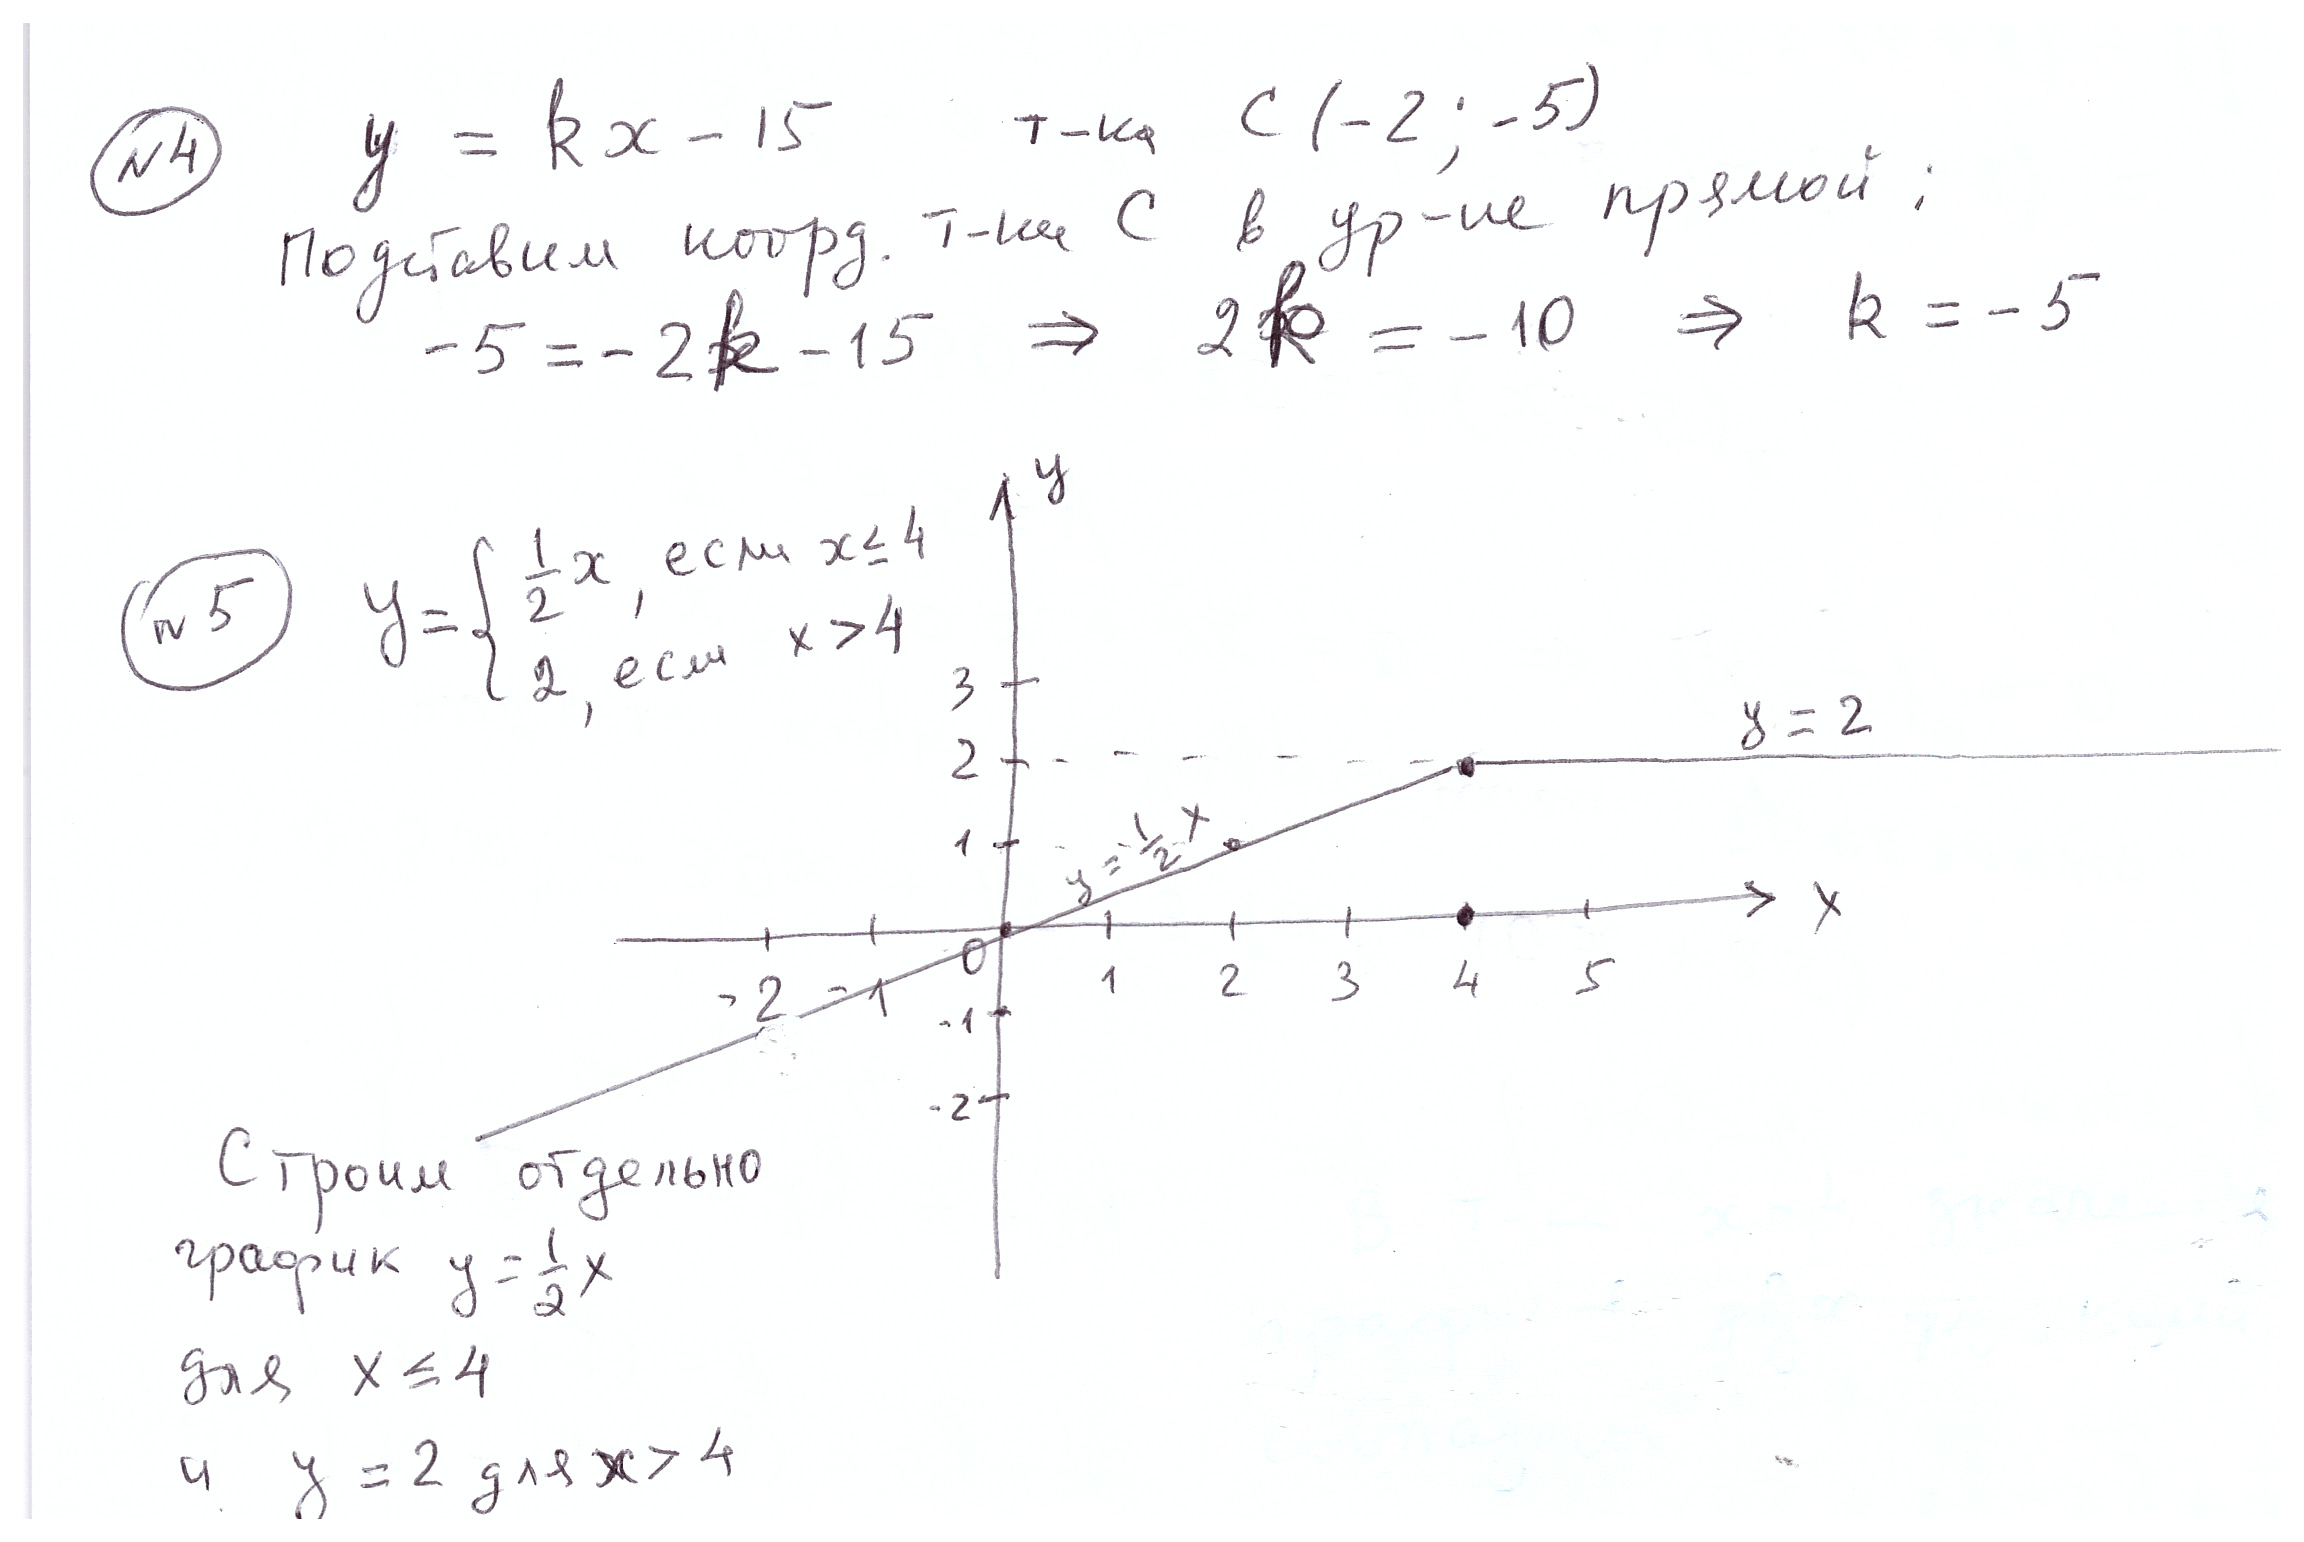 №4 y = kx - 15 т-ка C (-2; -5)
Подставим коорд. т-ки C в ур-ие прямой:
-5 = -2k - 15 ⇒ 2k = -10 ⇒ k = -5
y
№5 y = { 1/2 x, если x ≤ 4
2, если x > 4
3
y = 2
2
y = 1/2 x
1
x
0
-2 -1 1 2 3 4 5
-1
-2
Строим отдельно
график y = 1/2 x
для x ≤ 4
и y = 2 для x > 4